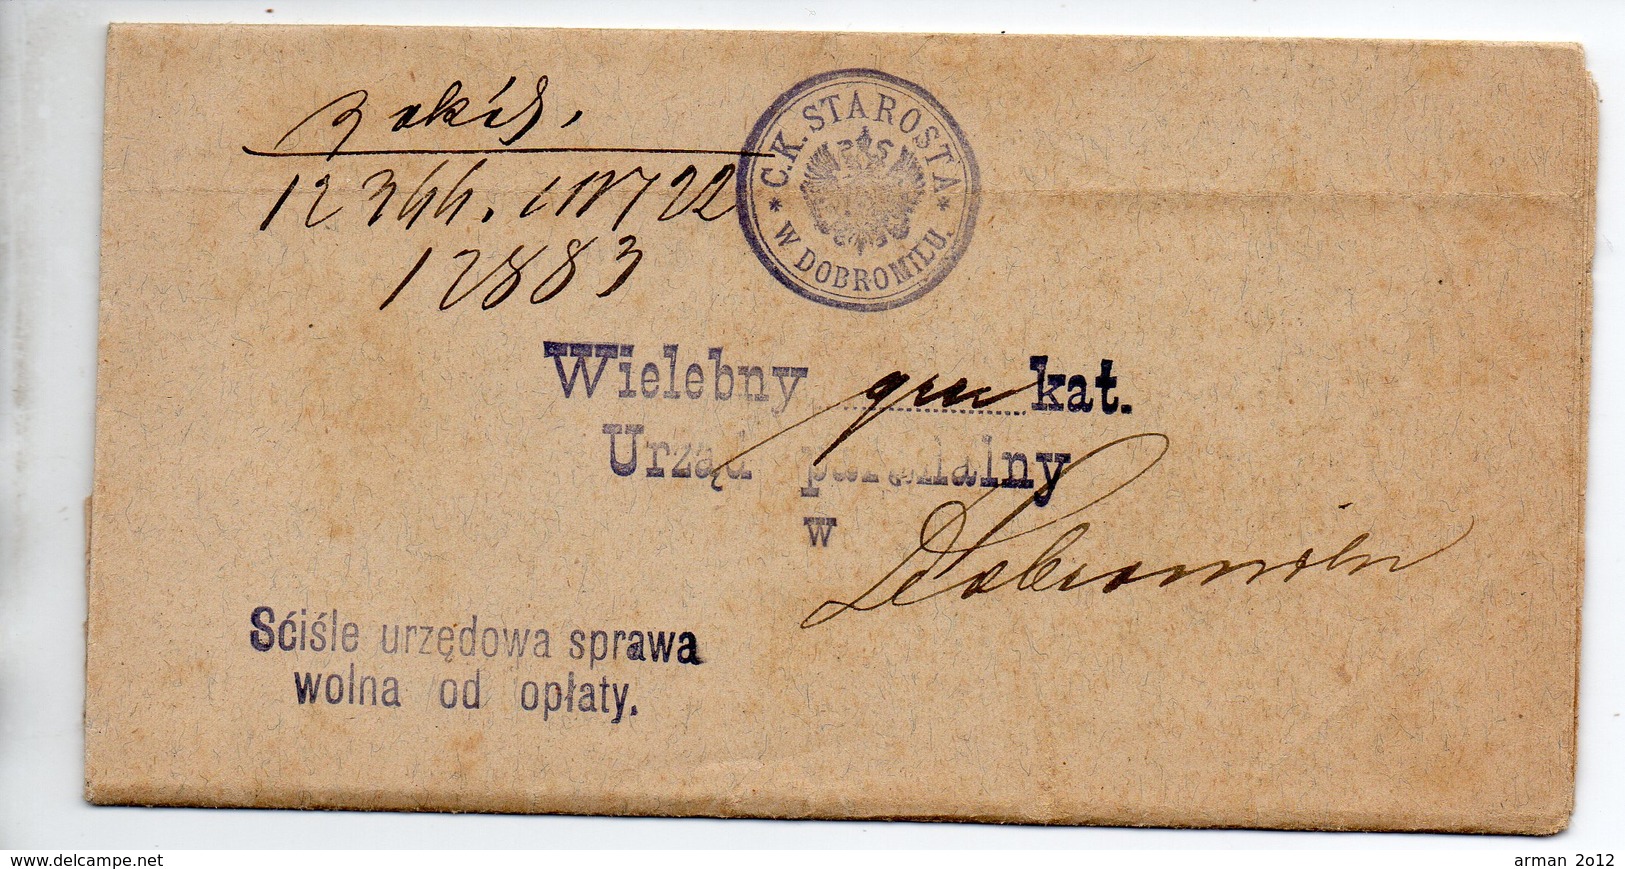 12344.
12883
* C.K. STAROSTA * W DOBROMILU.
Wielebny gr kat.
Urząd parafialny
w Dobromilu
Sćiśle urzędowa sprawa
wolna od opłaty.
www.delcampe.net
arman 2012